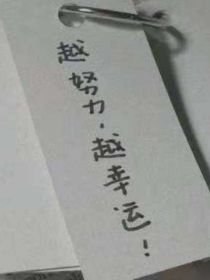 越努力．越幸运！